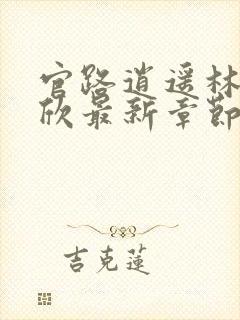 官路逍遥林
欣最新章节
吉克莲